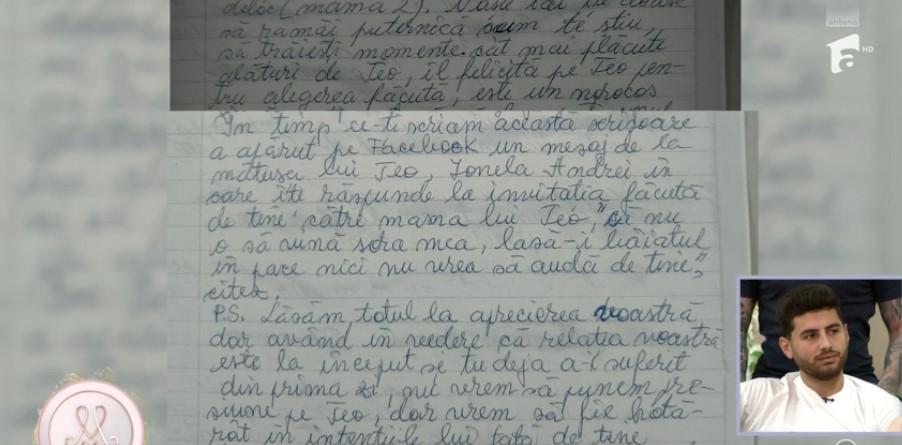 deloc (mama 2).
să rămăi puternică cum te știu,
să trăiești momente cât mai plăcute
alături de Teo, îl felicită pe Teo pen-
tru alegerea făcută, este un norocos
În timp ce-ți scriam această scrisoare
a apărut pe Facebook un mesaj de la
mătușa lui Teo, Ionela Andrei în
care îți răspunde la invitatia făcută
de tine către mama lui Teo, "că nu
o să vină sora mea, lasă-i băiatul
în pace nici nu vrea să audă de tine",
citez.
P.S. Lăsăm totul la aprecierea voastră
dar având în vedere că relația voastră
este la început și tu deja a-i suferit
din prima zi, nu vrem să punem pre-
siune pe Teo, dar vrem să fie hotă-
rât în intențiile lui față de tine
antena
HD